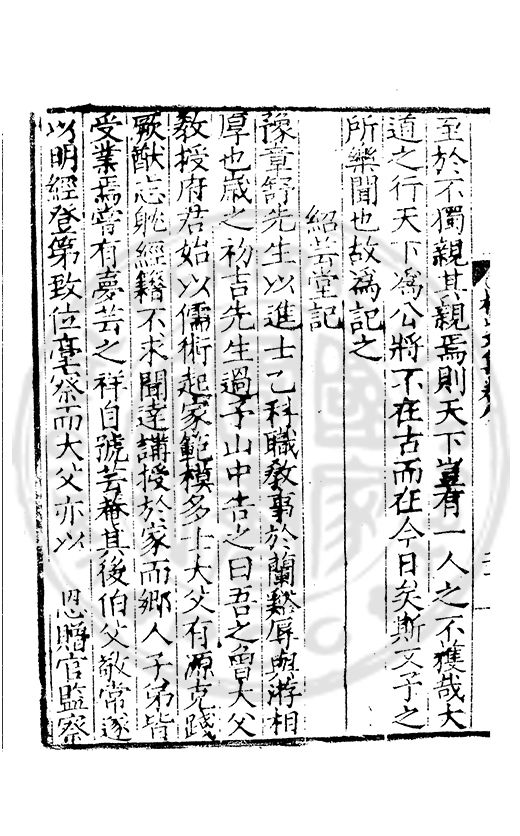 至於不獨親其親焉則天下豈有一人之不獲哉大
道之行天下為公將不在古而在今日矣斯又予之
所樂聞也故為記之
紹芸堂記
豫章舒先生以進士乙科職教事於蘭谿辱與游相
厚也歲之初吉先生過予山中告之曰吾之曾大父
教授府君始以儒術起家範模多士大父有源克踐
厥猷志耽經籍不求聞達講授於家而鄉人子弟皆
受業焉嘗有夢芸之祥自號芸菴其後伯父敏常遂
以明經登第致位臺察而大父亦以 恩贈官監察